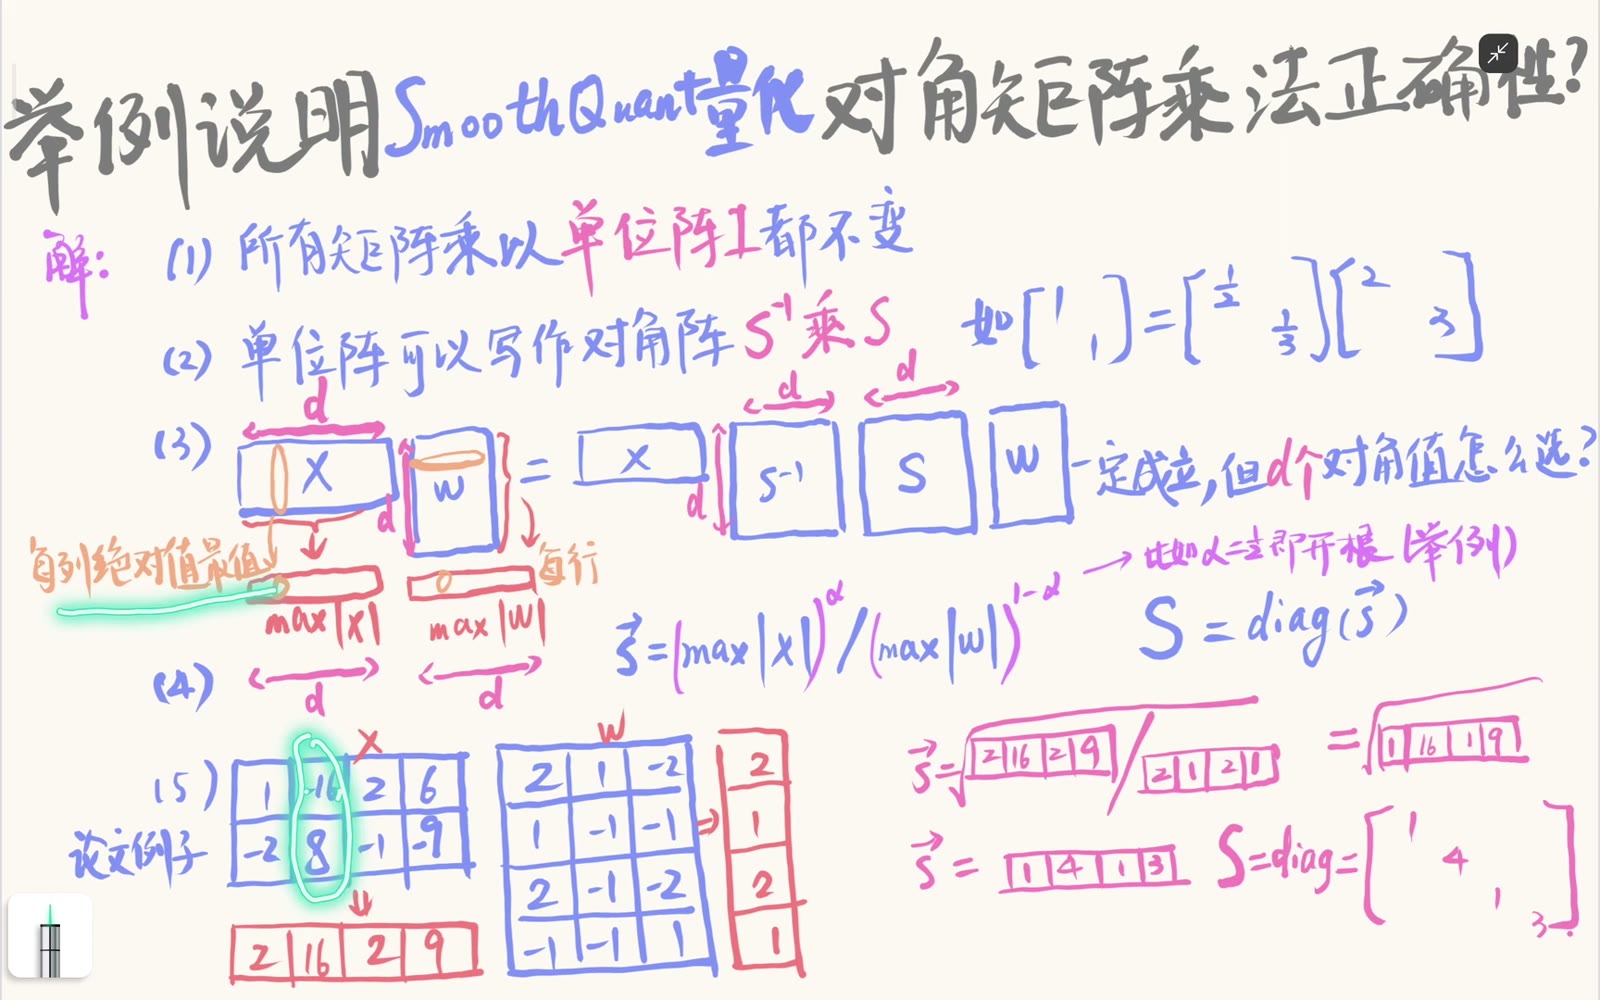 举例说明SmoothQuant量化对角矩阵乘法正确性?
解: (1) 所有矩阵乘以单位阵I都不变
(2) 单位阵可以写作对角阵 S⁻¹乘S 如[1 1]=[1/2 1/3][2 3]
d d d
(3) X W = X S⁻¹ S W 一定成立,但d个对角值怎么选?
d d
每列绝对值最值 每行
max|X| max|W|
→比如α=½即开根(举例)
(4) d d s⃗=(max|X|)^α/(max|W|)^1-α S=diag(s⃗)
(5) X W
论文例子
1 -16 2 6
-2 8 -1 -9
⇓
2 16 2 9
2 1 -2
1 -1 -1
2 -1 -2
-1 -1 1
⇒
2
1
2
1
s⃗=√2 16 2 9 / 2 1 2 1 = √1 16 1 9
s⃗= 1 4 1 3 S=diag=[1 4 1 3]